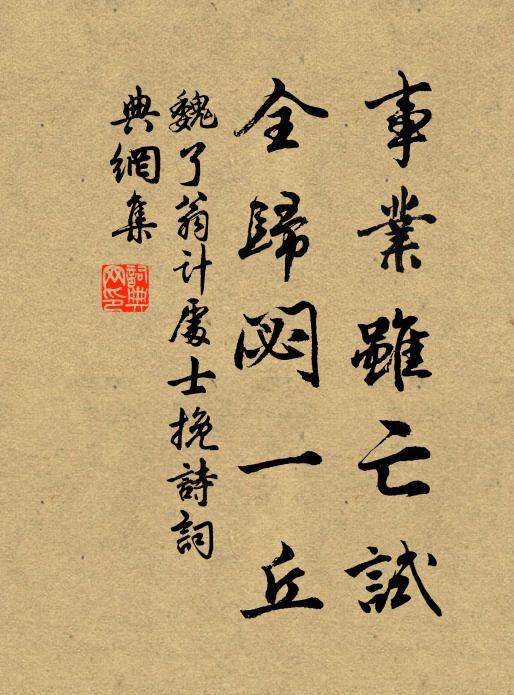 事業雖亡試
全歸閟一丘
魏了翁計處士挽詩詞
典網集
詞典網印